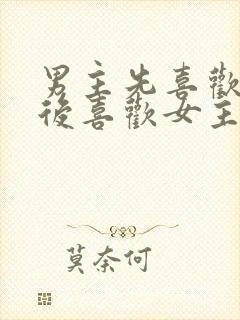 男主先喜歡
後喜歡女主
莫奈何